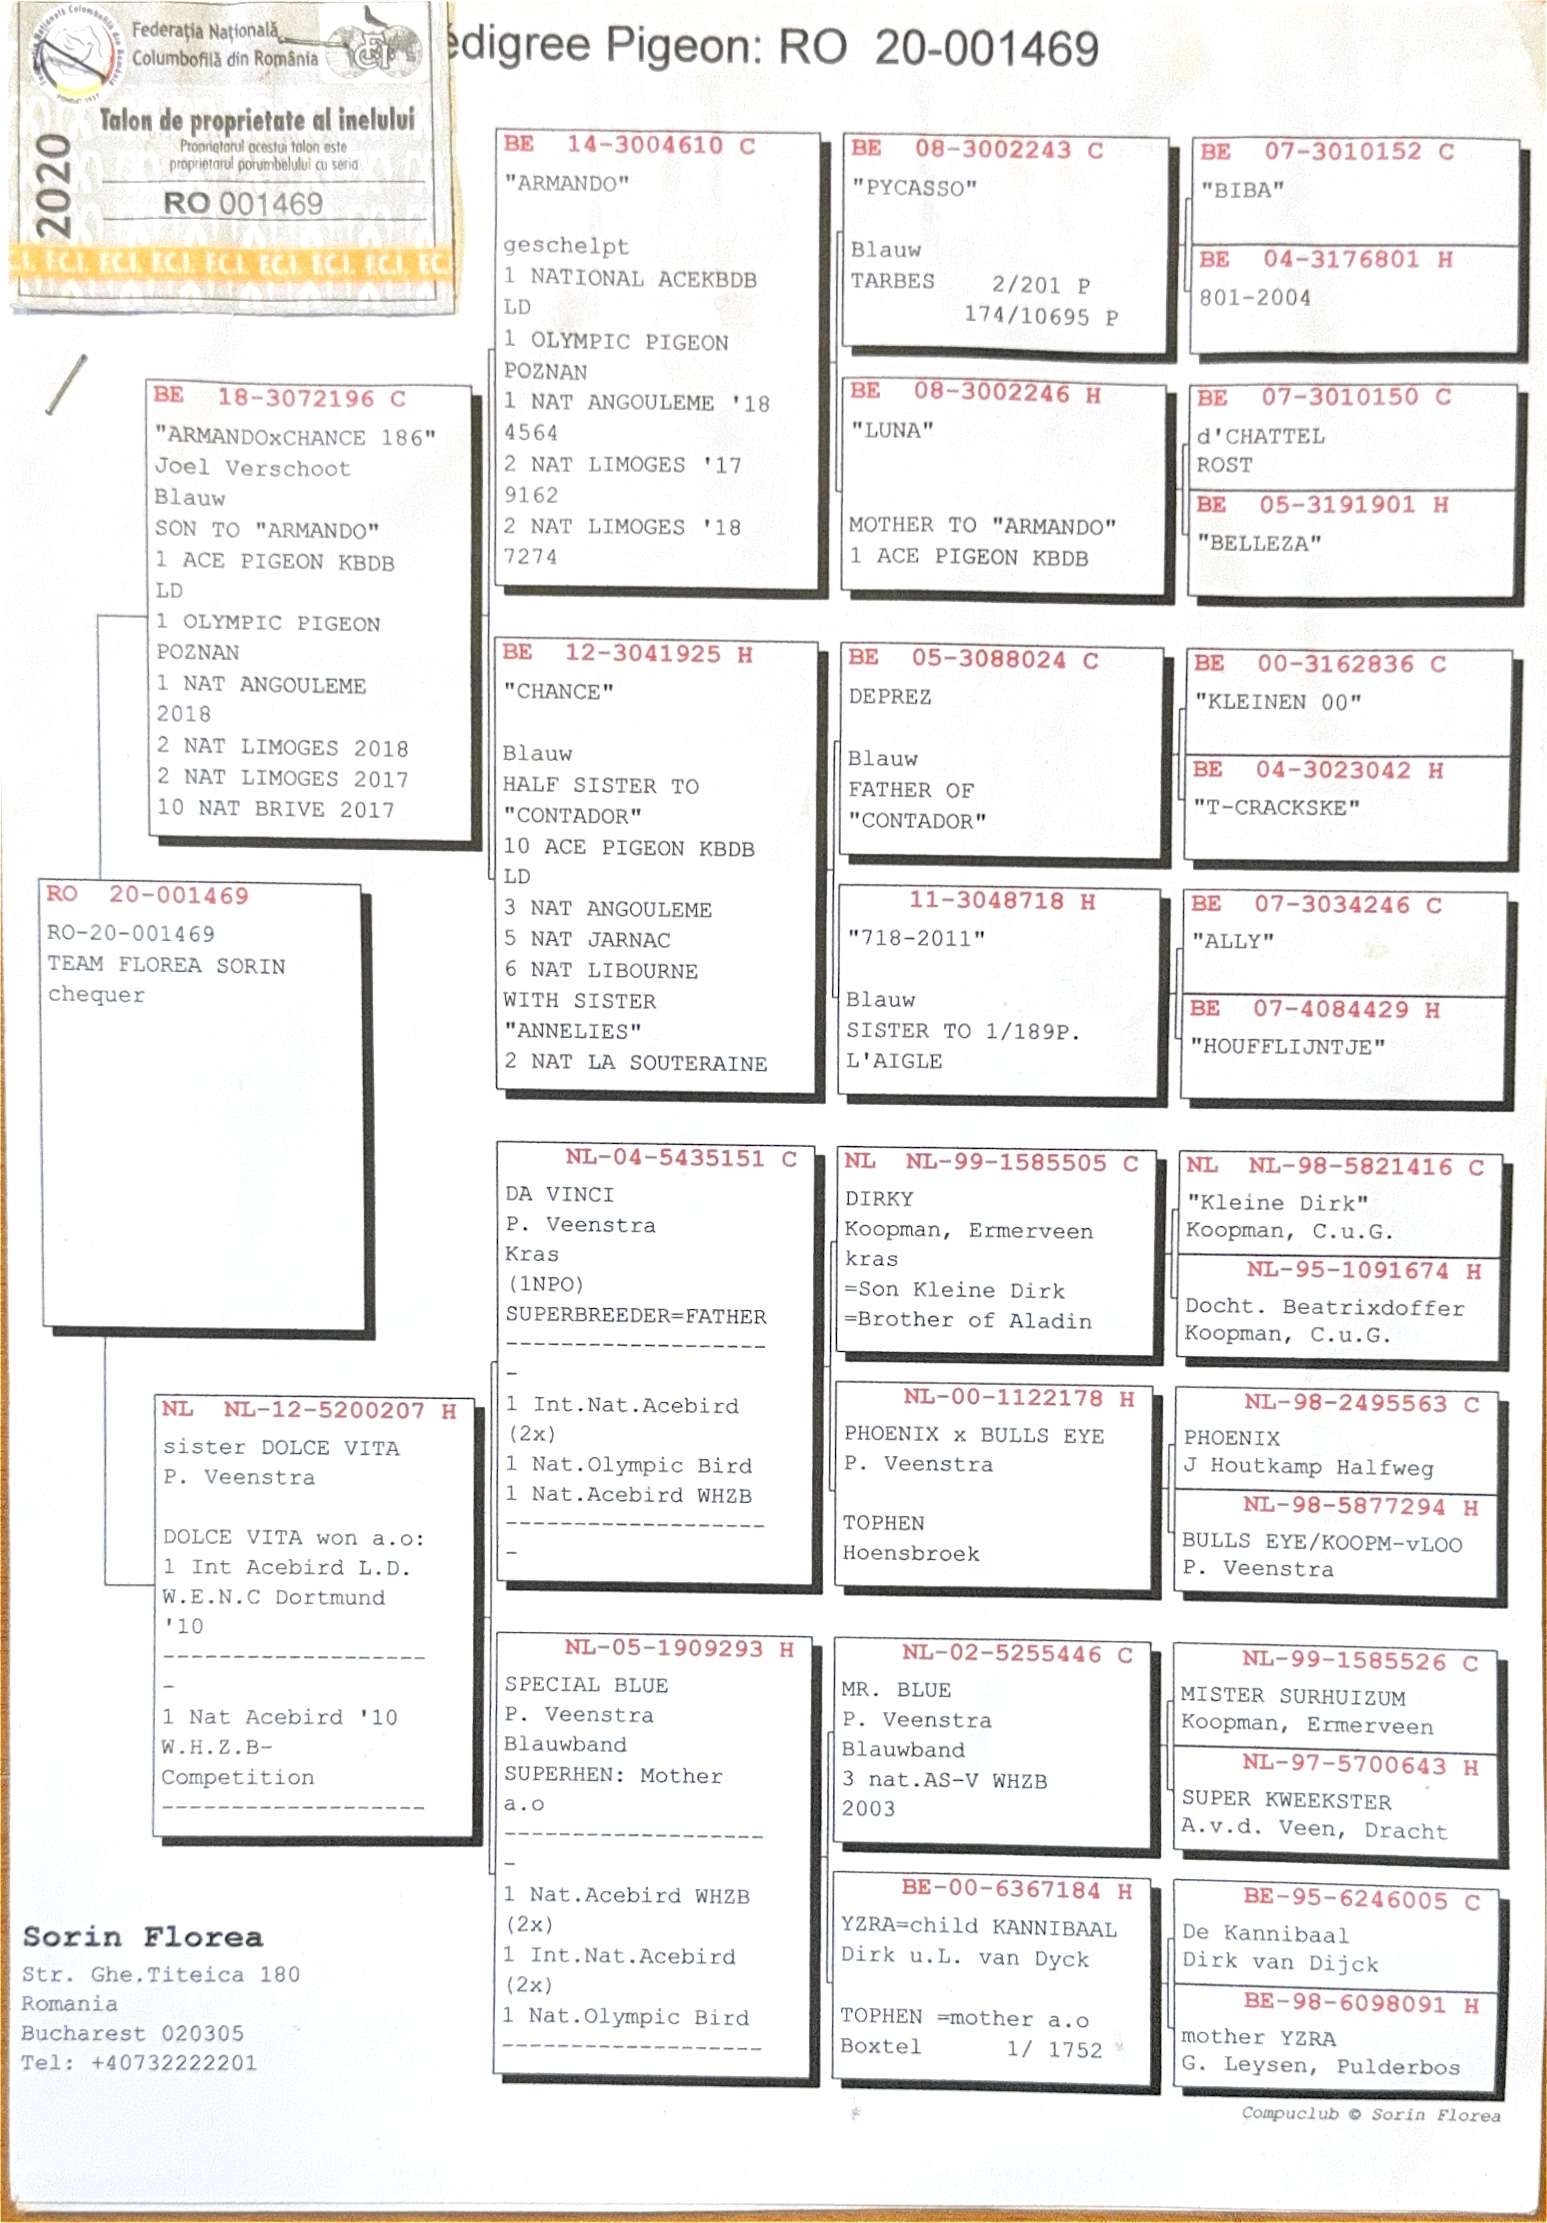 Federația Națională
Columbofilă din România
Talon de proprietate al inelului
Proprietarul acestui talon este
proprietarul porumbelului cu seria
2020
RO 001469
F.C.I. F.C.I. F.C.I. F.C.I. F.C.I. F.C.I.
édigree Pigeon: RO 20-001469
RO 20-001469
RO-20-001469
TEAM FLOREA SORIN
chequer
BE 18-3072196 C
"ARMANDOxCHANCE 186"
Joel Verschoot
Blauw
SON TO "ARMANDO"
1 ACE PIGEON KBDB
LD
1 OLYMPIC PIGEON
POZNAN
1 NAT ANGOULEME
2018
2 NAT LIMOGES 2018
2 NAT LIMOGES 2017
10 NAT BRIVE 2017
NL NL-12-5200207 H
sister DOLCE VITA
P. Veenstra
DOLCE VITA won a.o:
1 Int Acebird L.D.
W.E.N.C Dortmund
'10
-------------------
-
1 Nat Acebird '10
W.H.Z.B-
Competition
-------------------
BE 14-3004610 C
"ARMANDO"
geschelpt
1 NATIONAL ACEKBDB
LD
1 OLYMPIC PIGEON
POZNAN
1 NAT ANGOULEME '18
4564
2 NAT LIMOGES '17
9162
2 NAT LIMOGES '18
7274
BE 12-3041925 H
"CHANCE"
Blauw
HALF SISTER TO
"CONTADOR"
10 ACE PIGEON KBDB
LD
3 NAT ANGOULEME
5 NAT JARNAC
6 NAT LIBOURNE
WITH SISTER
"ANNELIES"
2 NAT LA SOUTERAINE
NL-04-5435151 C
DA VINCI
P. Veenstra
Kras
(1NPO)
SUPERBREEDER=FATHER
-------------------
-
1 Int.Nat.Acebird
(2x)
1 Nat.Olympic Bird
1 Nat.Acebird WHZB
-------------------
-
NL-05-1909293 H
SPECIAL BLUE
P. Veenstra
Blauwband
SUPERHEN: Mother
a.o
-------------------
-
1 Nat.Acebird WHZB
(2x)
1 Int.Nat.Acebird
(2x)
1 Nat.Olympic Bird
-------------------
BE 08-3002243 C
"PYCASSO"
Blauw
TARBES 2/201 P
174/10695 P
BE 08-3002246 H
"LUNA"
MOTHER TO "ARMANDO"
1 ACE PIGEON KBDB
BE 05-3088024 C
DEPREZ
Blauw
FATHER OF
"CONTADOR"
11-3048718 H
"718-2011"
Blauw
SISTER TO 1/189P.
L'AIGLE
NL NL-99-1585505 C
DIRKY
Koopman, Ermerveen
kras
=Son Kleine Dirk
=Brother of Aladin
NL-00-1122178 H
PHOENIX x BULLS EYE
P. Veenstra
TOPHEN
Hoensbroek
NL-02-5255446 C
MR. BLUE
P. Veenstra
Blauwband
3 nat.AS-V WHZB
2003
BE-00-6367184 H
YZRA=child KANNIBAAL
Dirk u.L. van Dyck
TOPHEN =mother a.o
Boxtel 1/ 1752
BE 07-3010152 C
"BIBA"
BE 04-3176801 H
801-2004
BE 07-3010150 C
d'CHATTEL
ROST
BE 05-3191901 H
"BELLEZA"
BE 00-3162836 C
"KLEINEN 00"
BE 04-3023042 H
"T-CRACKSKE"
BE 07-3034246 C
"ALLY"
BE 07-4084429 H
"HOUFFLIJNTJE"
NL NL-98-5821416 C
"Kleine Dirk"
Koopman, C.u.G.
NL-95-1091674 H
Docht. Beatrixdoffer
Koopman, C.u.G.
NL-98-2495563 C
PHOENIX
J Houtkamp Halfweg
NL-98-5877294 H
BULLS EYE/KOOPM-vLOO
P. Veenstra
NL-99-1585526 C
MISTER SURHUIZUM
Koopman, Ermerveen
NL-97-5700643 H
SUPER KWEEKSTER
A.v.d. Veen, Dracht
BE-95-6246005 C
De Kannibaal
Dirk van Dijck
BE-98-6098091 H
mother YZRA
G. Leysen, Pulderbos
Sorin Florea
Str. Ghe.Titeica 180
Romania
Bucharest 020305
Tel: +40732222201
Compuclub © Sorin Florea